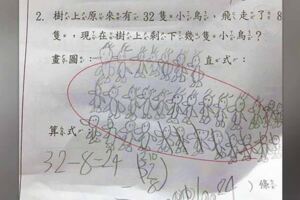 2. 樹上原來有32隻小鳥，飛走了8
隻，現在樹上剩下幾隻小鳥？
畫圖： 直式：
算式：
32-8-24
310
32
8
24) 條